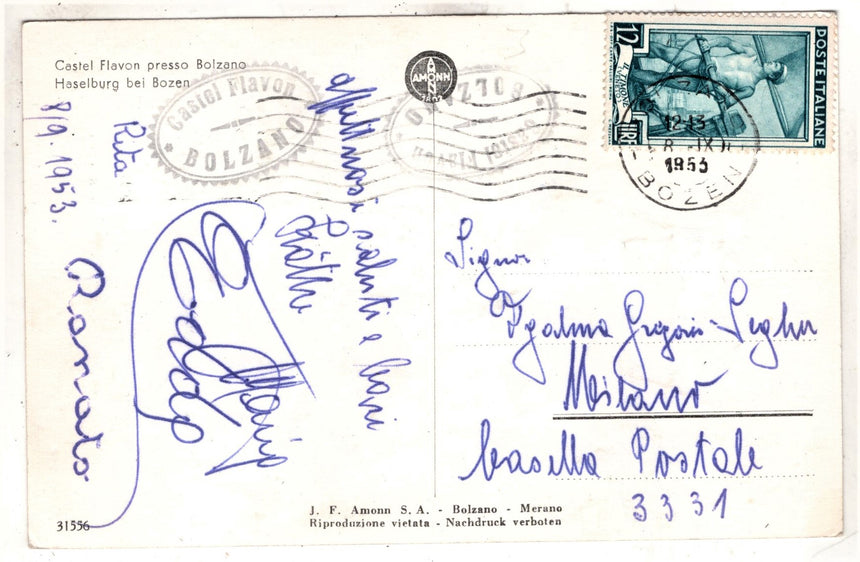 Castel Flavon presso Bolzano
Haselburg bei Bozen
AMONN
1802
Castel Flavon
* BOLZANO *
Castel Flavon
BOLZANO
12
LIRE
POSTE ITALIANE
12-13
8 - IX
1953
BOZEN
8/9. 1953.
affettuosi saluti e baci
Käthe
Rita
Maria
Renato
Signor
Milano
Casella Postale
3331
J. F. Amonn S. A. - Bolzano - Merano
Riproduzione vietata - Nachdruck verboten
31556